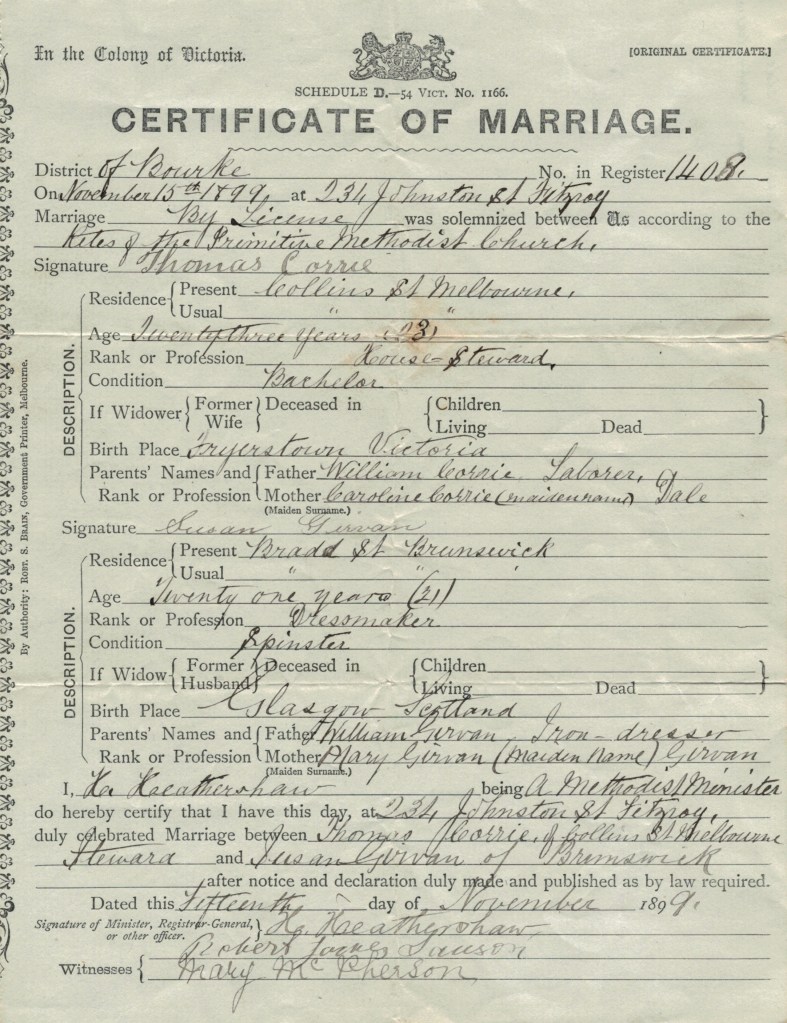 In the Colony of Victoria. [ORIGINAL CERTIFICATE.]
SCHEDULE D.—54 VICT. No. 1166.
CERTIFICATE OF MARRIAGE.
District of Bourke No. in Register 1408.
On November 15th 1899 at 234 Johnston St Fitzroy
Marriage By License was solemnized between Us according to the
Rites of the Primitive Methodist Church.
Signature Thomas Corrie
Residence Present Collins St Melbourne.
Usual " "
Age Twenty three years (23)
Rank or Profession House=Steward.
Condition Bachelor
If Widower Former Wife Deceased in Children Living Dead
Birth Place Fryerstown Victoria
Parents' Names and Rank or Profession Father William Corrie, Laborer,
Mother Caroline Corrie (maiden name) Dale
(Maiden Surname.)
Signature Susan Girvan
Residence Present Bradd St Brunswick
Usual " " "
Age Twenty one years (21)
Rank or Profession Dressmaker
Condition Spinster
If Widow Former Husband Deceased in Children Living Dead
Birth Place Glasgow Scotland
Parents' Names and Rank or Profession Father William Girvan, Iron-dresser
Mother Mary Girvan (Maiden Name) Girvan
(Maiden Surname.)
I, Heathershaw being A Methodist Minister
do hereby certify that I have this day, at 234 Johnston St Fitzroy,
duly celebrated Marriage between Thomas Corrie, of Collins St Melbourne
Steward and Susan Girvan of Brunswick
after notice and declaration duly made and published as by law required.
Dated this Fifteenth day of November 1899.
Signature of Minister, Registrar-General, or other officer. Heathershaw
Witnesses Robert
Mary McPherson
DESCRIPTION.
DESCRIPTION.
By Authority: ROBT. S. BRAIN, Government Printer, Melbourne.